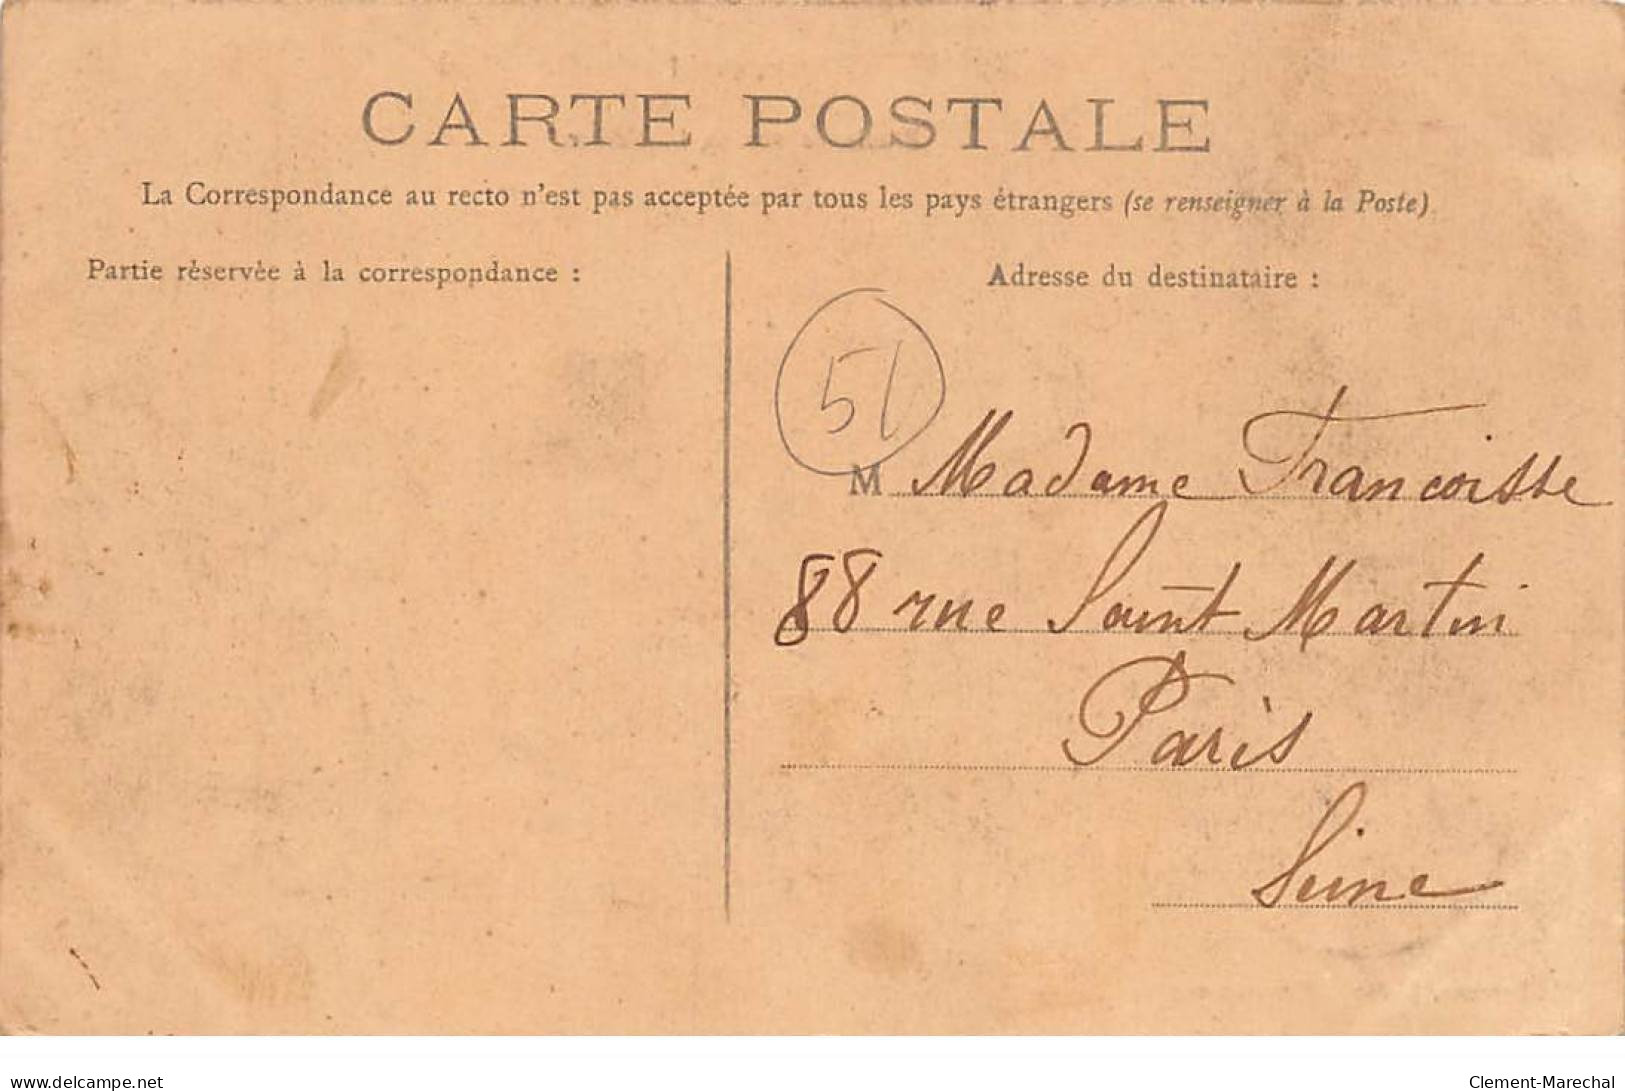 CARTE POSTALE
La Correspondance au recto n'est pas acceptée par tous les pays étrangers (se renseigner à la Poste)
Partie rèservèe à la correspondance :
Adresse du destinataire :
51
M Madame Francoisse
88 rue Saint Martin
Paris
Seine
www.delcampe.net
Clement-Marechal